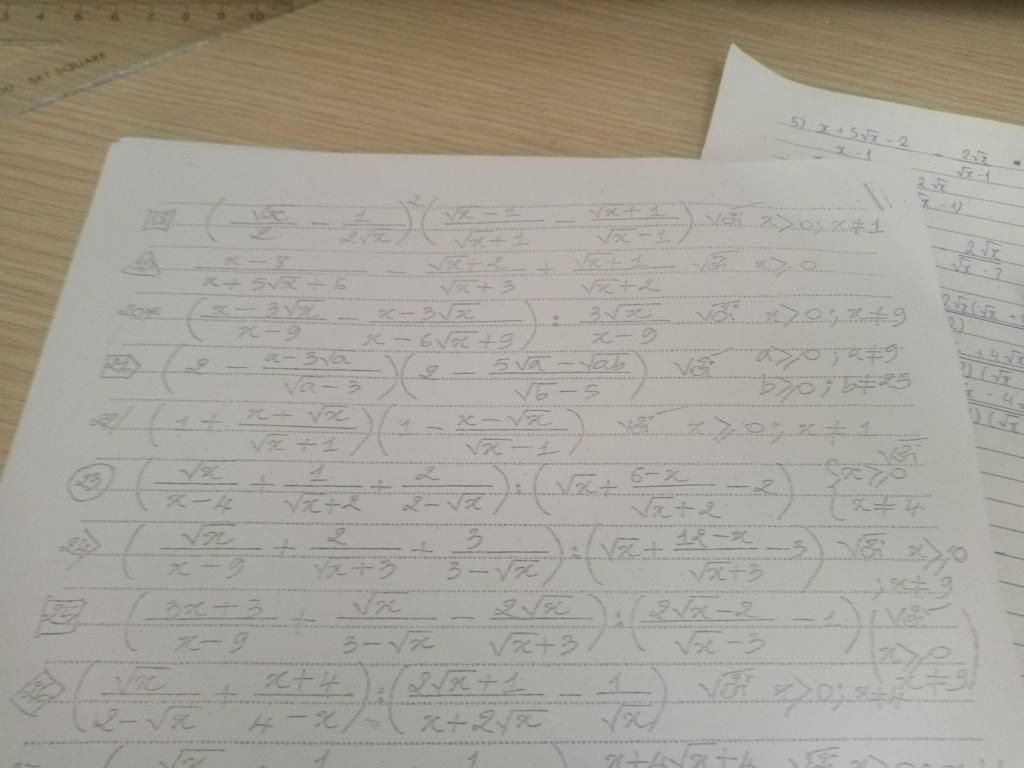 3 4 5 6 7 8 9 10
SET SQUARE
5) x + 5√x - 2 / x - 1 - 2√x / √x - 1
(√x / 2 - 1 / 2√x)² (√x - 1 / √x + 1 - √x + 1 / √x - 1) với x > 0; x ≠ 1
x - 8 / x + 5√x + 6 - √x + 2 / √x + 3 + √x + 1 / √x + 2 với x ⩾ 0
20* (x - 3√x / x - 9 - x - 3√x / x - 6√x + 9) : 3√x / x - 9 với x > 0; x ≠ 9
21 (2 - a - 3√a / √a - 3) (2 - 5√a - √ab / √b - 5) với a ⩾ 0; a ≠ 9
b ⩾ 0; b ≠ 25
22/ (1 + x + √x / √x + 1) (1 - x - √x / √x - 1) với x ⩾ 0; x ≠ 1
23 (√x / x - 4 + 1 / √x + 2 + 2 / 2 - √x) : (√x + 6 - x / √x + 2 - 2) với { x ⩾ 0
x ≠ 4
24> (√x / x - 9 + 2 / √x + 3 + 3 / 3 - √x) : (√x + 12 - x / √x + 3 - 3) với x ⩾ 0
; x ≠ 9
25 (3x + 3 / x - 9 + √x / 3 - √x - 2√x / √x + 3) : (2√x - 2 / √x - 3 - 1) (với
x ⩾ 0
x ≠ 9)
26 (√x / 2 - √x + x + 4 / 4 - x) : (2√x + 1 / x + 2√x - 1 / √x) với x > 0; x ≠ 4
x + 4√x + 4 với